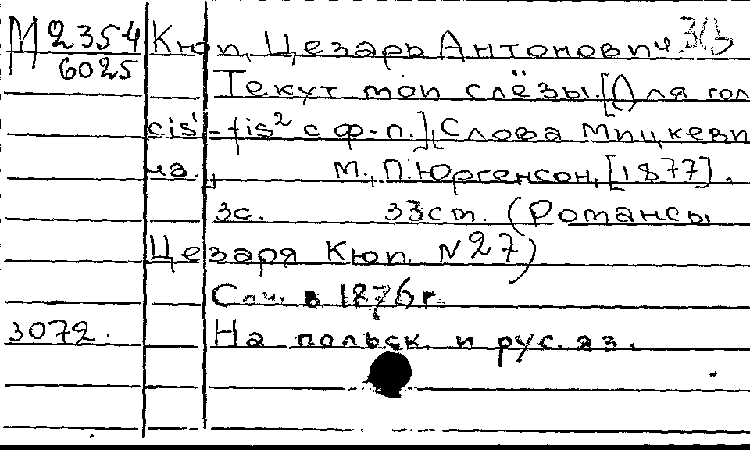 М 2354 Кюи, Цезарь Антонович
6025 Текут мои слёзы. [Для гол
cis¹ - fis² с ф-п.]. Слова Мицкеви
ча. М., П. Юргенсон, [1877].
3с. 33 см. (Романсы
Цезаря Кюи. № 27)
Соч. в 1876 г.
3072. На польск. и рус. яз.